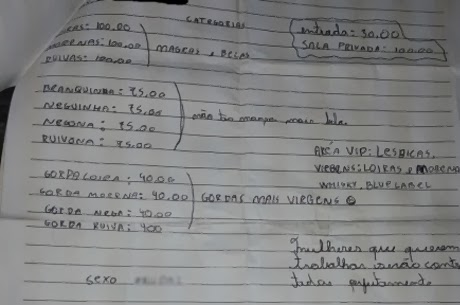 CATEGORIAS
entrada: 30.00
SALA PRIVADA: 100.00
100.00
MORENAS: 100.00
RUIVAS: 100.00
MAGRAS e BELAS
BRANQUINHA: 75.00
NEGUINHA: 75.00
NEGONA: 75.00
RUIVONA: 75.00
não tão mais bela
ÁREA VIP: LESBICAS,
VIRGENS: LOIRAS e MORENA
WHISKY, BLUE LABEL
GORDA LOIRA: 40.00
GORDA MORENA: 40.00
GORDA NEGA: 40.00
GORDA RUIVA: 400
GORDAS MAIS VIRGENS
mulheres que querem
trabalhar serão contra
tadas
sexo